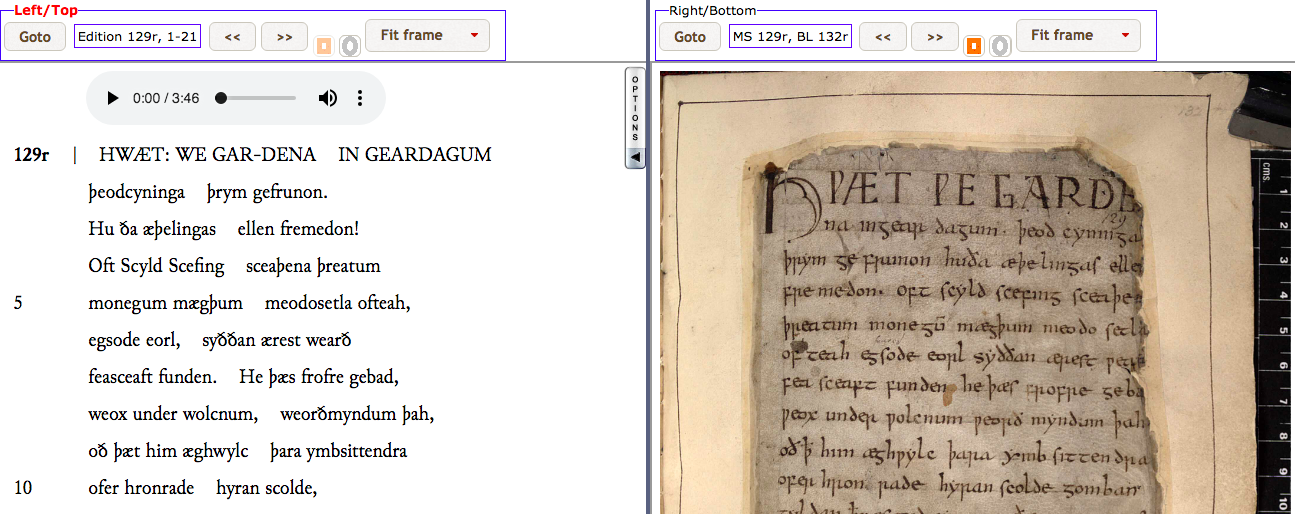 Left/Top
Goto
Edition 129r, 1-21
<<
>>
Fit frame
Right/Bottom
Goto
MS 129r, BL 132r
<<
>>
Fit frame
0:00 / 3:46
OPTIONS
129r | HWÆT: WE GAR-DENA IN GEARDAGUM
þeodcyninga þrym gefrunon.
Hu ða æþelingas ellen fremedon!
Oft Scyld Scefing sceaþena þreatum
5 monegum mægþum meodosetla ofteah,
egsode eorl, syððan ærest wearð
feasceaft funden. He þæs frofre gebad,
weox under wolcnum, weorðmyndum þah,
oð þæt him æghwylc þara ymbsittendra
10 ofer hronrade hyran scolde,
132
HǷÆT ǷE GARDE
na ingear dagum. þeod cyninga
þrym ge frunon huða æþelingas elle
fre medon. oft scyld scefing sceaþe
þreatum monegū mægþum meodo setla
of teah egsode eorl syððan ærest ƿear
fea sceaft funden he þæs frofre geba
ƿeox under ƿolcnum ƿeorð myndum þah
oð ꝥ him æghƿylc þara ymb sittendra
ofer hron rade hyran scolde gomban
cms.
1
2
3
4
5
6
7
8
9
10